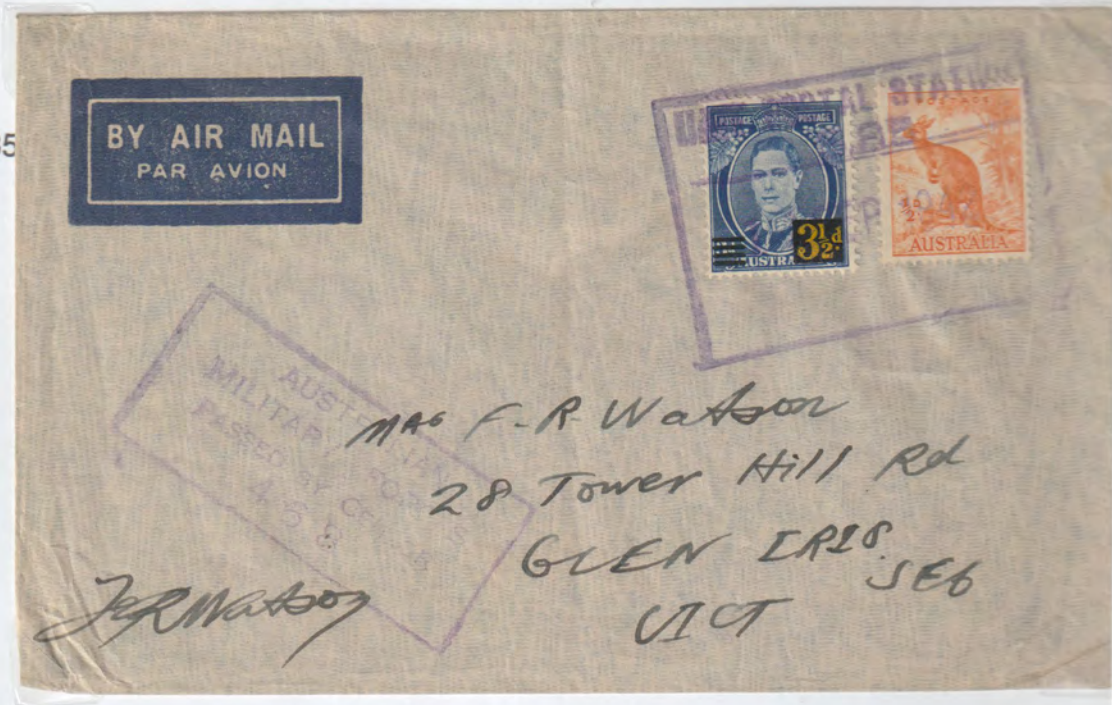 BY AIR MAIL
PAR AVION
POSTAL STATION
POSTAGE POSTAGE
3½d
AUSTRA
POSTAGE
½D
AUSTRALIA
AUSTRALIAN
MILITARY FORCES
PASSED BY CENSOR
468
Mrs F-R-Watson
28 Tower Hill Rd
GLEN IRIS
SE6
VICT
FRWatson